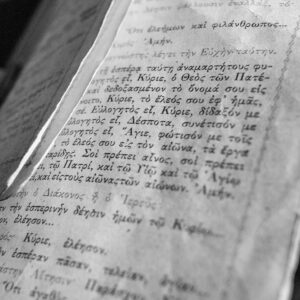 Ὅτι ἐλεήμων καὶ φιλάνθρωπος...
Ἀμήν.
λέγει τὴν Εὐχὴν ταύτην.
ἑσπέρᾳ ταύτῃ ἀναμαρτήτους φυ-
εἶ, Κύριε, ὁ Θεὸς τῶν Πατέ-
καὶ δεδοξασμένον τὸ ὄνομά σου εἰς
Κύριε, τὸ ἔλεός σου ἐφ' ἡμᾶς,
Εὐλογητὸς εἶ, Κύριε, δίδαξόν με
εὐλογητὸς εἶ, Δέσποτα, συνέτισόν με
εὐλογητὸς εἶ, Ἅγιε, φώτισόν με τοῖς
τὸ ἔλεός σου εἰς τὸν αἰῶνα, τὰ ἔργα
Σοὶ πρέπει αἶνος, σοὶ πρέπει
τῷ Πατρί, καὶ τῷ Υἱῷ καὶ τῷ Ἁγίῳ
καὶ εἰς τοὺς αἰῶνας τῶν αἰώνων. Ἀμήν.
ὁ Διάκονος ἢ ὁ Ἱερεύς
τὴν ἑσπερινὴν δέησιν ἡμῶν τῷ Κυρίῳ.
ἐλέησον...
Κύριε, ἐλέησον.
ἑσπέραν πᾶσαν, τελείαν, ἁγίαν,